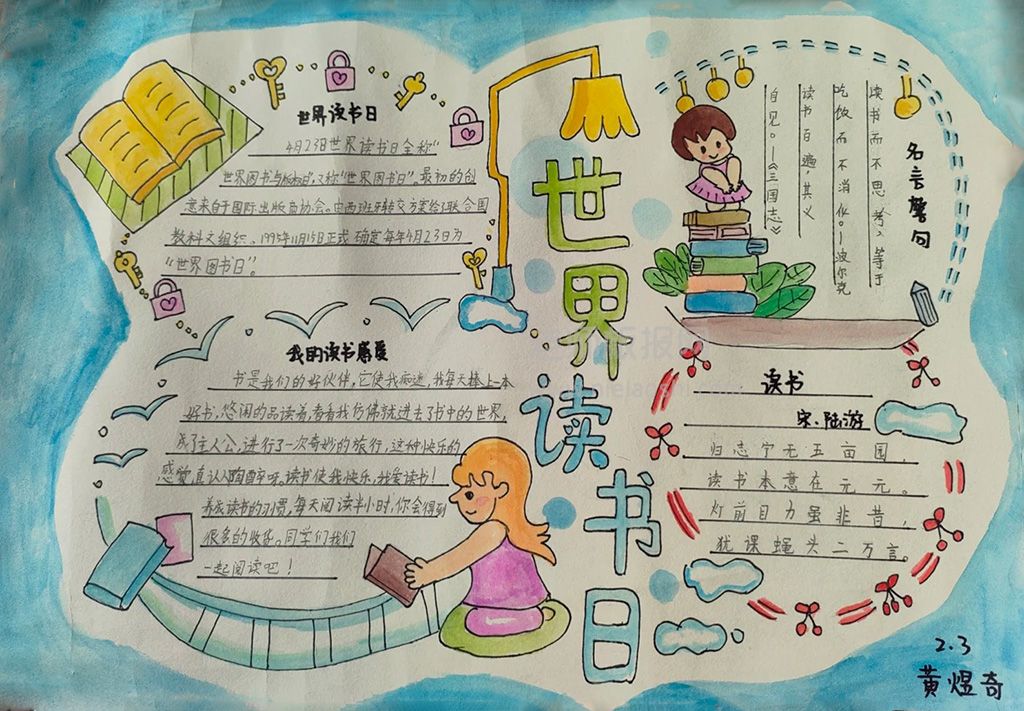 世界读书日
世界读书日
4月23日世界读书日全称“
世界图书与版权日”，又称“世界图书日”。最初的创
意来自于国际出版商协会。由西班牙转交方案给了联合国
教科文组织。1995年11月15日正式确定每年4月23日为
“世界图书日”。
我的读书感受
书是我们的好伙伴，它使我痴迷，我每天捧上一本
好书，悠闲的品读着，看着我仿佛就进去了书中的世界，
成了主人公，进行了一次奇妙的旅行，这种快乐的
感觉，真让人陶醉呀。读书使我快乐，我爱读书！
养成读书的习惯，每天阅读半小时，你会得到
很多的收货。同学们我们
一起阅读吧！
名言警句
读书而不思考，等于
吃饭而不消化。—波尔克
读书百遍，其义
自见。—《三国志》
读书
宋·陆游
归志宁无五亩园，
读书本意在元元。
灯前目力虽非昔，
犹课蝇头二万言。
2.3
黄煜奇